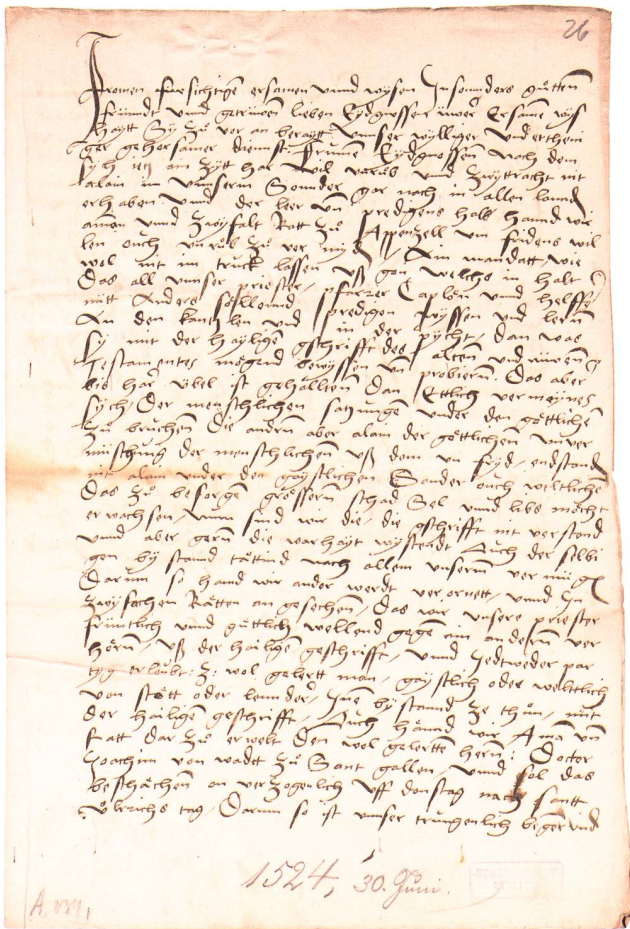 26
Fromen fürsichtigen ersamen unnd wysen Insonnders gutten
fründt unnd getrüwen lieben Eydgnossen üwer Ersame wys
haytt Sy zu vor an beraytt unnser wylliger undertheni
ger gehorsamer dienst: Frumen Eydgnossen nach dem
sych ietz am Zytt har vil unrub und Zwytracht nit
alain in unnserm Sonnder gar nach in allen lannd
erhaben unnd der leer un predigens halb hannd wir
aman unnd Zwyfalt Rätt zu Appenzell um fridens wil
len ouch unrub zu ver myden Ain mandatt wie
wol nit im truck lassen uß gon welchs in halt
Das all unnser priester, pfarrer Caplen unnd helffer
nütt Anders söllennd predigen wyssen und leren
An den kantzlen und in der pycht, dan was
sy mit der hayligen gschrifft des alten und nüwen
Testamentes mögend bewyssen un probieren. Das aber
bis har übel ist gehaltten Dan Ettlich vermeynen
sych, Der menschlichen satzungen under den göttlichen
zu bruchen Die andern aber alain der göttlichen unver
müschung der menschlichen uß dem un fryd, endstand
nit alain under den gaystlichen Sonder ouch weltlichen
Das zu besorgen grössern schad Sel unnd libs möcht
erwachsen, unn sind wir die, die gschrifft nit verstond
unnd aber gern die warhayt wystendt Ouch der selbi
gen by stannd tättind nach allem unnserm vermügen
Darum so hand wir ander werdt verornett, unnd In
zwyfachen Rätten an gesechen, Das wir unsere priester
früntlich unnd güttlich wellend gegen ein andern ver
hörn, uß der hailigen geschrifft, unnd Jedtweder par
tyg erloubt: 2: wol gelertt man, gaystlich oder weltlich
von stett oder lennder, Inen bystannd ze thun, mit
der hailigen geschrifft, Ouch hannd wir Aman un
Ratt dar zu erwelt Den wol gelertten herrn: Doctor
Joachim von wadt zu Sant gallen, unnd sol das
beschächen on verzogenlich uff donstag nach santt
Ulrichs tag, Darum so ist unser trungenlich beger und
1524, 30. Juni.